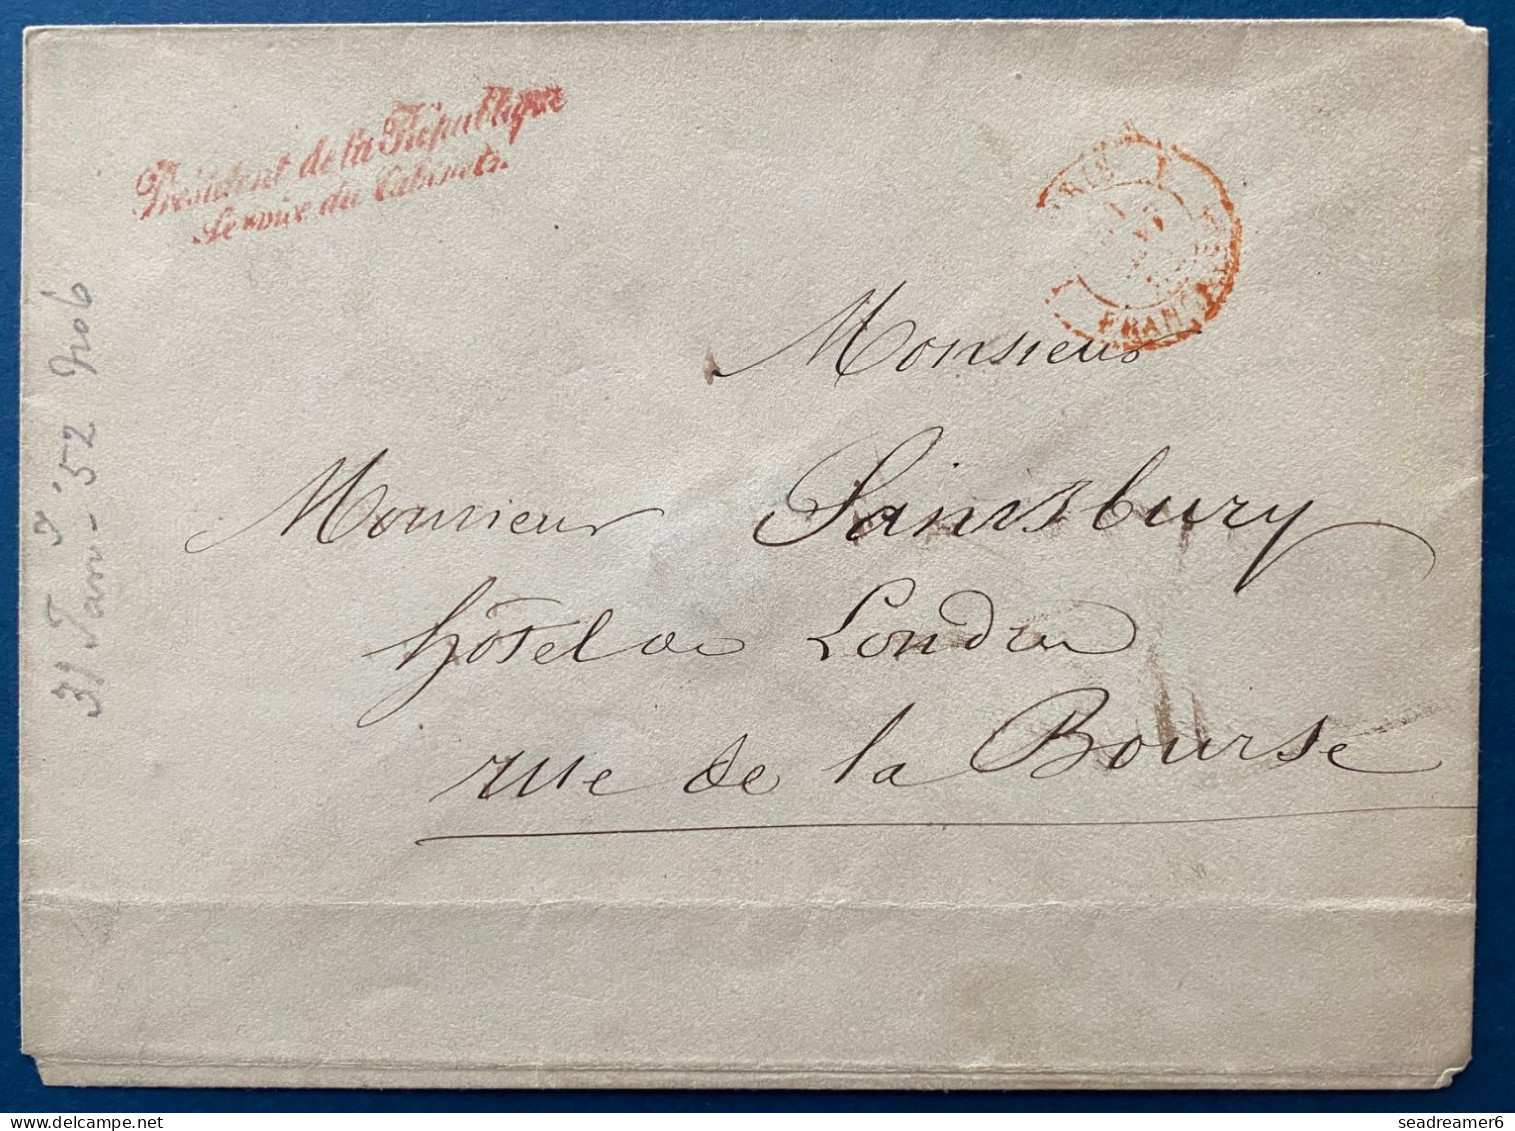 Président de la République
Service du Cabinet
FRANÇAISE
Monsieur
Monsieur Sainsbury
hôtel de Londres
rue de la Bourse
31 Jan- '52
seadreamer6